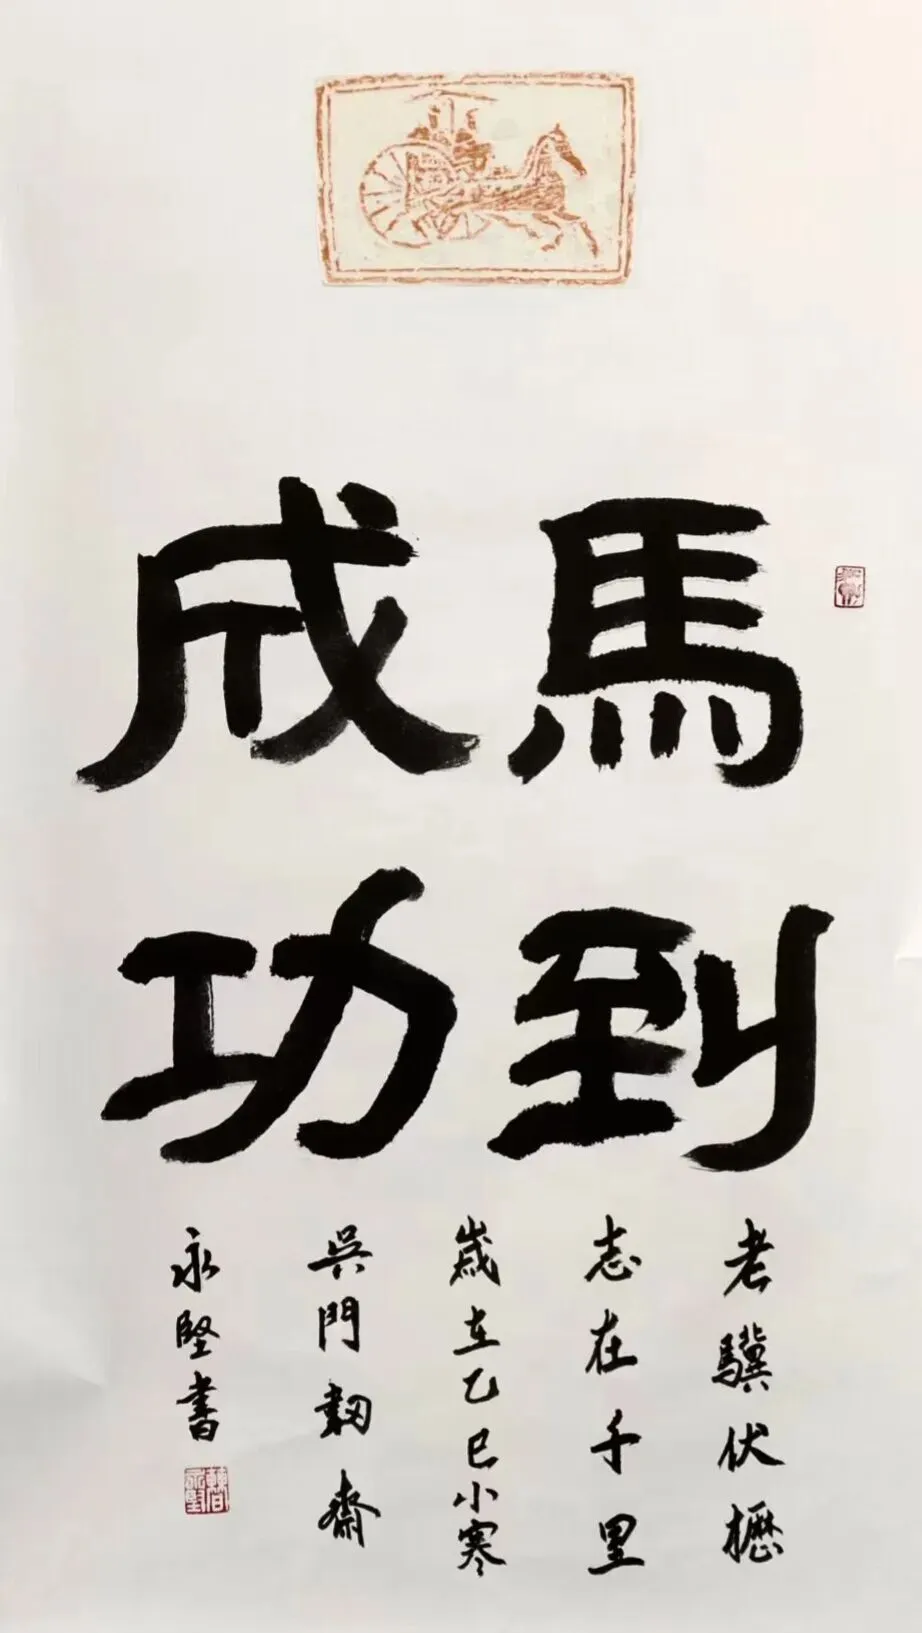 馬到
成功
老驥伏櫪
志在千里
歲在乙巳小寒
吳門韌齋
永堅書